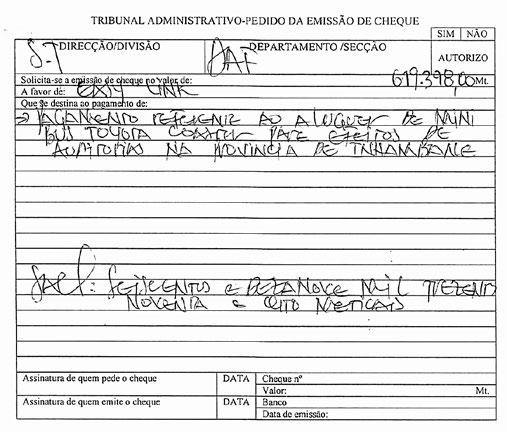 TRIBUNAL ADMINISTRATIVO-PEDIDO DA EMISSÃO DE CHEQUE
SIM NÃO
DIRECÇÃO/DIVISÃO DEPARTAMENTO /SECÇÃO AUTORIZO
DAF
Solicita-se a emissão de cheque no valor de: 619.398,00 Mt.
A favor de: LINK
Que se destina ao pagamento de:
PAGAMENTO REFERENTE AO ALUGUER DE MINI
BUS TOYOTA COASTER PARA EFEITOS DE
AUDITORIAS NA PROVINCIA DE INHAMBANE
SEISCENTOS E DEZANOVE MIL TREZENTOS
NOVENTA E OITO METICAIS
Assinatura de quem pede o cheque DATA Cheque nº
Valor: Mt.
Assinatura de quem emite o cheque DATA Banco
Data de emissão: